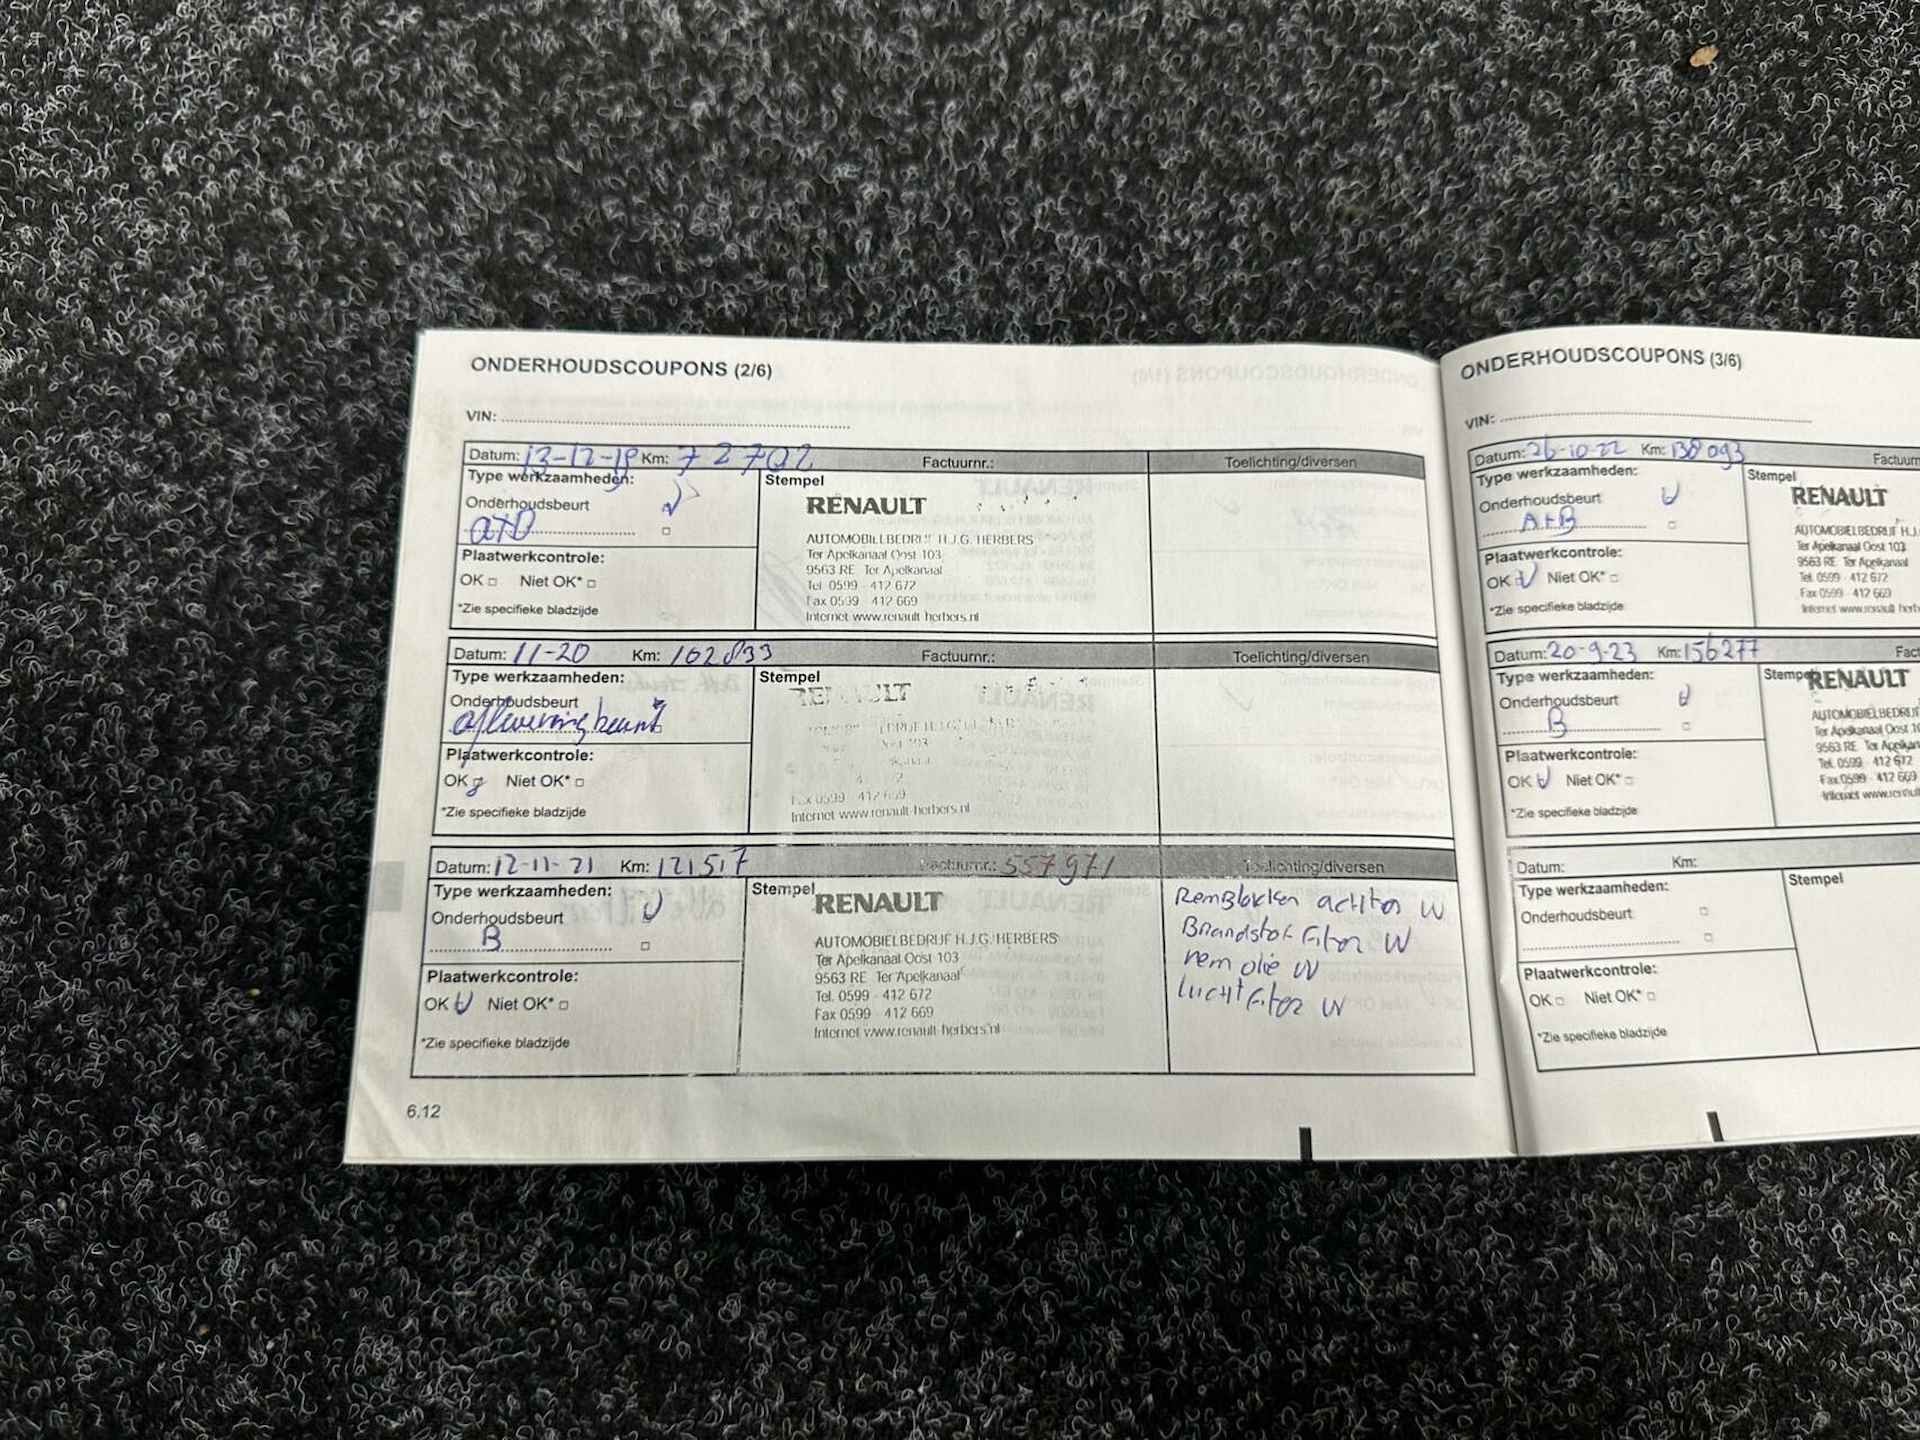 ONDERHOUDSCOUPONS (2/6)
VIN:
Datum: 13-12-19 Km: 72702 Factuurnr.: Toelichting/diversen
Type werkzaamheden:
Stempel
Onderhoudsbeurt
RENAULT
AUTOMOBIELBEDRIJF H.J.G. HERBERS
Ter Apelkanaal Oost 103
9563 RE Ter Apelkanaal
Tel 0599 - 412 672
Fax 0599 412 669
Internet www.renault-herbers.nl
Plaatwerkcontrole:
OK Niet OK*
*Zie specifieke bladzijde
Datum: 11-20 Km: 102833 Factuurnr.: Toelichting/diversen
Type werkzaamheden:
Stempel
Onderhoudsbeurt
afleveringbeurt
RENAULT
Fax 0599 412 669
Internet www.renault-herbers.nl
Plaatwerkcontrole:
OK Niet OK*
*Zie specifieke bladzijde
Datum: 12-11-21 Km: 121517 Factuurnr.: 557971 Toelichting/diversen
Type werkzaamheden:
Stempel
Onderhoudsbeurt
B
RENAULT
AUTOMOBIELBEDRIJF H.J.G. HERBERS
Ter Apelkanaal Oost 103
9563 RE Ter Apelkanaal
Tel. 0599 - 412 672
Fax 0599 - 412 669
Internet www.renault-herbers.nl
Remblokken achter W
Brandstof filter W
rem olie W
lucht filter W
Plaatwerkcontrole:
OK Niet OK*
*Zie specifieke bladzijde
6.12
ONDERHOUDSCOUPONS (3/6)
VIN:
Datum: 26-10-22 Km: 138093 Factuurn
Type werkzaamheden:
Stempel
Onderhoudsbeurt
A+B
RENAULT
AUTOMOBIELBEDRIJF H.J.
Ter Apelkanaal Oost 103
9563 RE Ter Apelkanaal
Tel. 0599 - 412 672
Fax 0599 - 412 669
Internet www.renault-herb
Plaatwerkcontrole:
OK Niet OK*
*Zie specifieke bladzijde
Datum: 20-9-23 Km: 156277 Fact
Type werkzaamheden:
Stempel
Onderhoudsbeurt
B
RENAULT
AUTOMOBIELBEDRIJF
Ter Apelkanaal Oost 10
9563 RE Ter Apelkana
Tel. 0599 - 412 672
Fax 0599 - 412 669
Internet www.renault
Plaatwerkcontrole:
OK Niet OK*
*Zie specifieke bladzijde
Datum: Km:
Type werkzaamheden:
Stempel
Onderhoudsbeurt
Plaatwerkcontrole:
OK Niet OK*
*Zie specifieke bladzijde